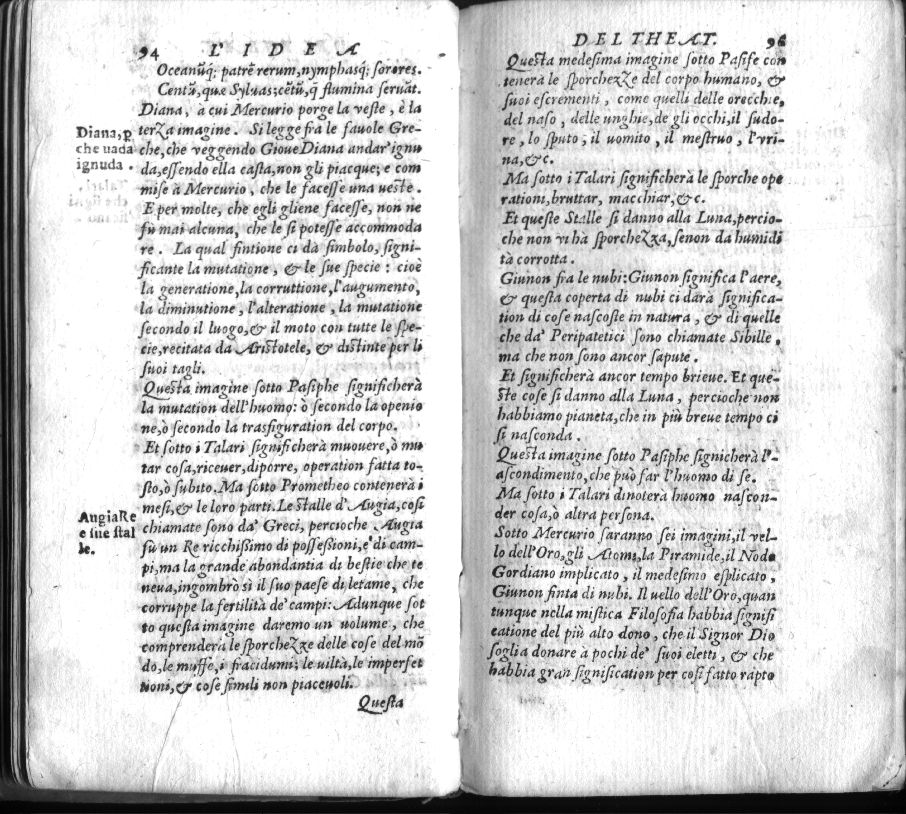 94 L'IDEA
Oceanũq; patrẽ rerum, nymphasq; sorores.
Centũ, que Syluas; cẽtũ, q̃ flumina seruãt.
Diana, a cui Mercurio porge la veste, è la
terza imagine. Si legge fra le fauole Gre-
che, che veggendo Gioue Diana andar ignu
da, essendo ella casta, non gli piacque; e com
mise à Mercurio, che le facesse una ueste.
E per molte, che egli gliene facesse, non ne
fù mai alcuna, che le si potesse accommoda
re. La qual fintione ci dà simbolo, signi-
ficante la mutatione, & le sue specie: cioè
la generatione, la corruttione, l'augumento,
la diminutione, l'alteratione, la mutatione
secondo il luogo, & il moto con tutte le spe-
cie, recitata da Aristotele, & distinte per li
suoi tagli.
Questa imagine sotto Pasiphe significherà
la mutation dell'huomo: ò secondo la openio
ne, ò secondo la trasfiguration del corpo.
Et sotto i Talari significherà muouere, ò mu
tar cosa, riceuer, diporre, operation fatta to-
sto, ò subito. Ma sotto Prometheo contenerà i
mesi, & le loro parti. Le stalle d'Augia, così
chiamate sono da' Greci, percioche Augia
fù un Re ricchissimo di possessioni, e di cam-
pi, ma la grande abondantia di bestie che te
neua, ingombrò sì il suo paese di letame, che
corruppe la fertilità de' campi: Adunque sot
to questa imagine daremo un volume, che
comprenderà le sporchezze delle cose del mõ
do, le muffe, i fracidumi; le uiltà, le imperfet
tioni, & cose simili non piaceuoli.
Questa
Diana, p
che uada
ignuda.
Augia Re
e sue stal
le.
DEL THEAT. 96
Questa medesima imagine sotto Pasife con
tenerà le sporchezze del corpo humano, &
suoi escrementi, come quelli delle orecchie,
del naso, delle unghie, de gli occhi, il sudo-
re, lo sputo, il uomito, il mestruo, l'vri-
na, &c.
Ma sotto i Talari significherà le sporche ope
rationi, bruttar, macchiar, &c.
Et queste Stalle si danno alla Luna, percio-
che non vi hà sporchezza, senon da humidi
tà corrotta.
Giunon fra le nubi: Giunon significa l'aere,
& questa coperta di nubi ci darà significa-
tion di cose nascoste in natura, & di quelle
che da' Peripatetici sono chiamate Sibille,
ma che non sono ancor sapute.
Et significherà ancor tempo brieue. Et que-
ste cose si danno alla Luna, percioche non
habbiamo pianeta, che in più breue tempo ci
si nasconda.
Questa imagine sotto Pasiphe signicherà l'-
ascondimento, che può far l'huomo di se.
Ma sotto i Talari dinoterà huomo nascon-
der cosa, ò altra persona.
Sotto Mercurio saranno sei imagini, il vel-
lo dell'Oro, gli Atomi, la Piramide, il Nodo
Gordiano implicato, il medesimo esplicato,
Giunon finta di nubi. Il uello dell'Oro, quan
tunque nella mistica Filosofia habbia signifi
catione del più alto dono, che il Signor Dio
soglia donare à pochi de' suoi eletti, & che
habbia gran signification per così fatto rapto